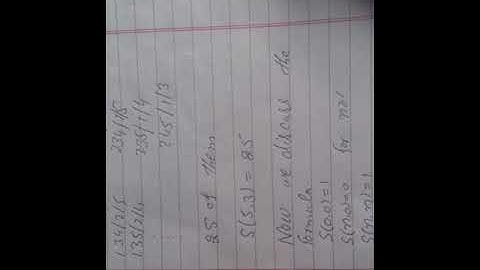 134/2/5 234/1/5
135/2/4 235/1/4
245/1/3
25 of them
S(5,3) = 25
Now we discuss the
formula
S(0,0)=1
S(n,0)=0 for n≥1
S(n,n)=1